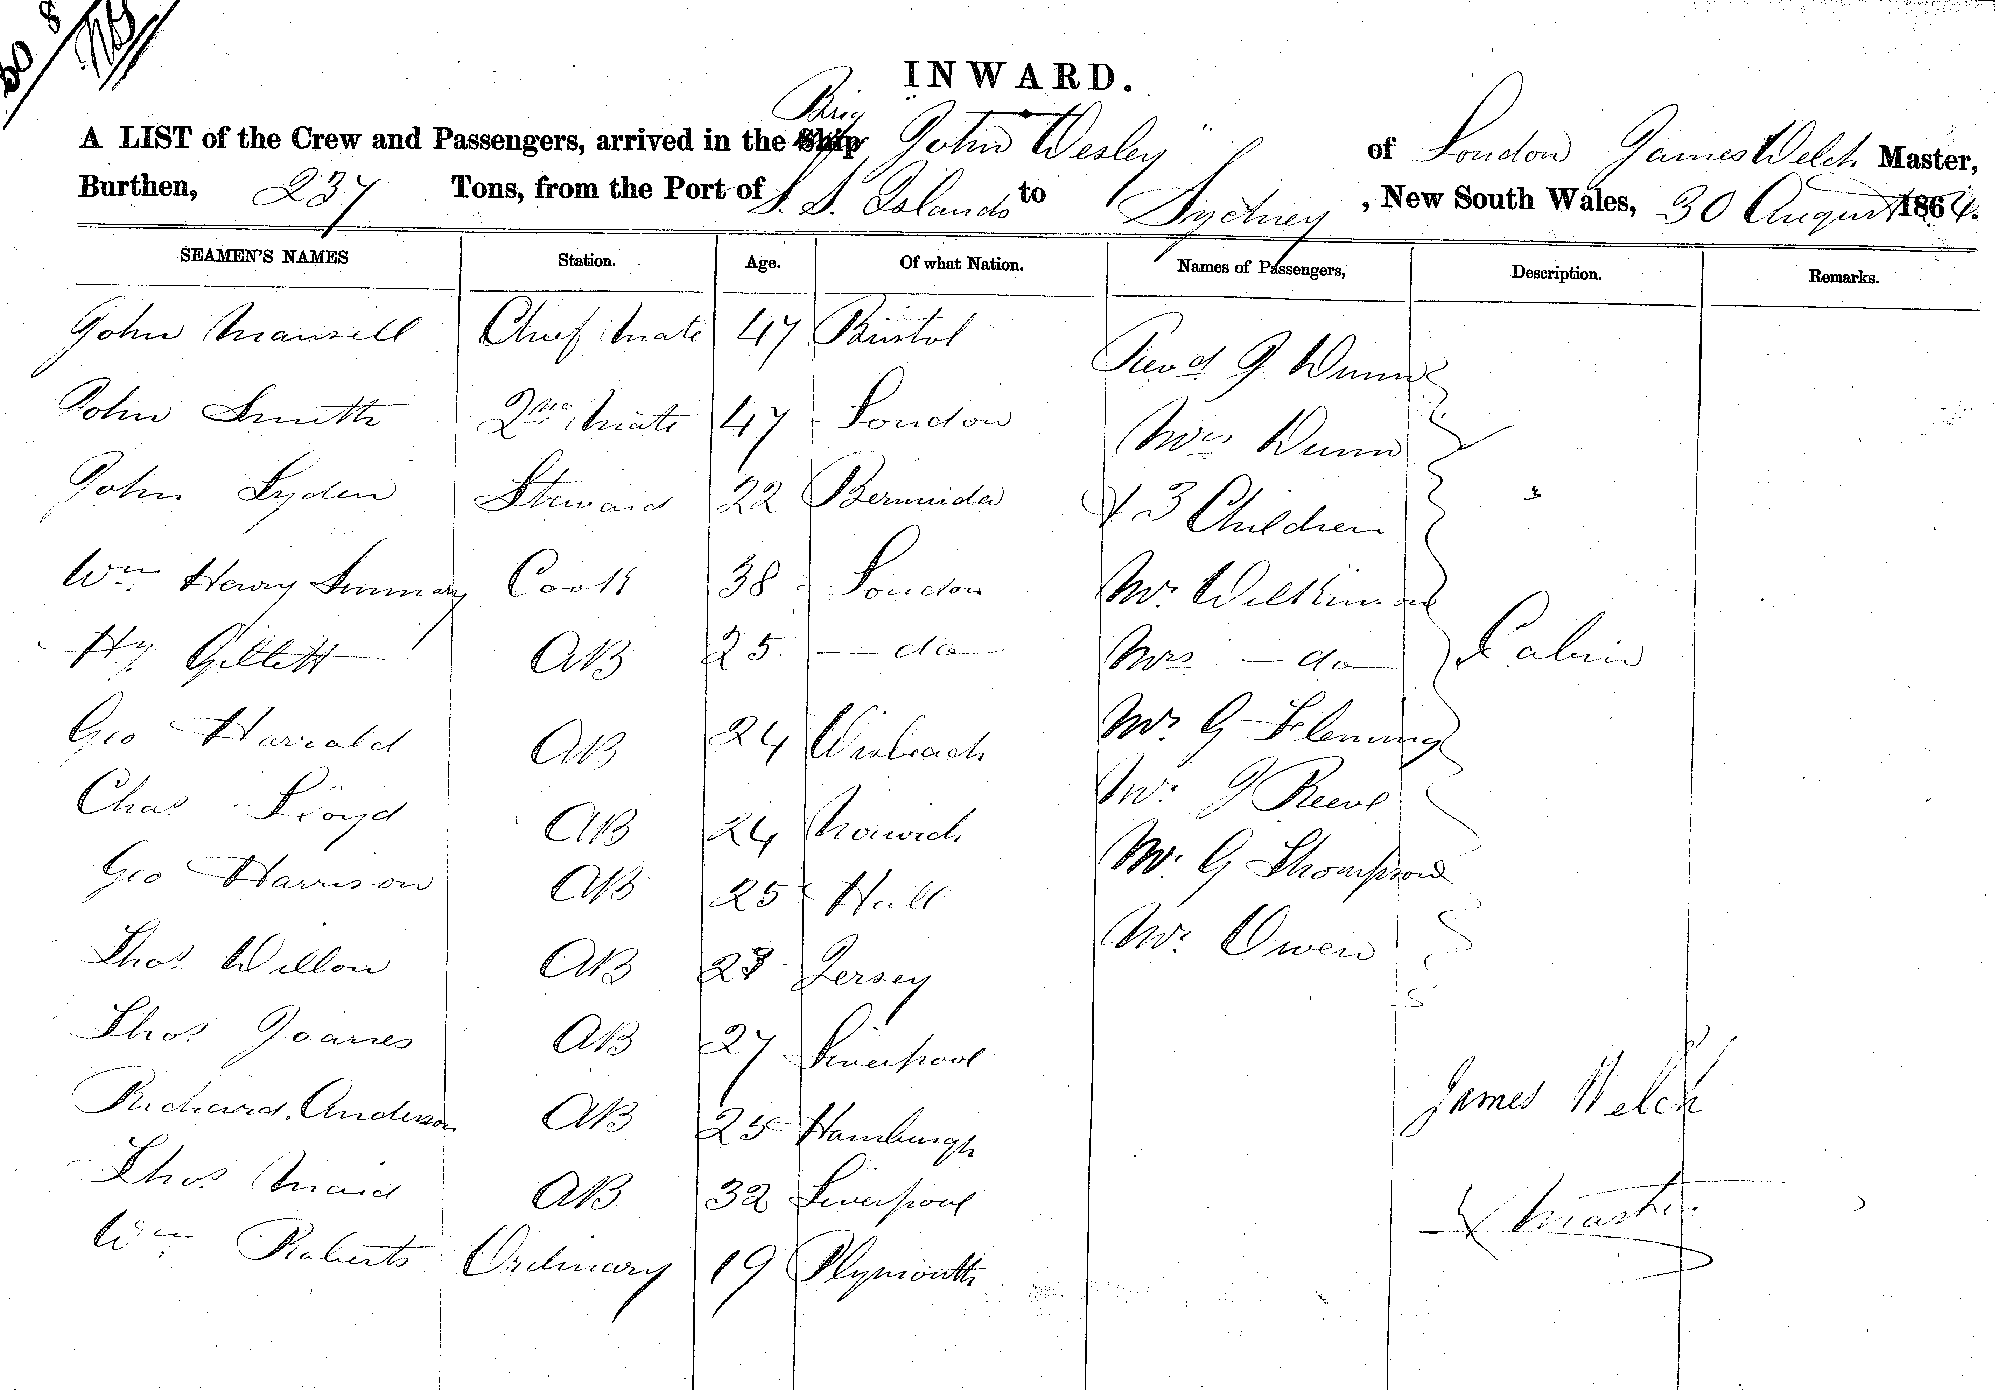 INWARD.
A LIST of the Crew and Passengers, arrived in the Ship Brig "John Wesley" of London James Welch Master,
Burthen, 237 Tons, from the Port of S. S. Islands to Sydney, New South Wales, 30 August 1864.
SEAMEN'S NAMES Station. Age. Of what Nation. Names of Passengers, Description. Remarks.
John Mansell Chief Mate 47 Bristol Revd J. Dunn
John Smith 2nd Mate 47 London Mrs Dunn
John Lyden Steward 22 Bermuda & 3 Children
Wm Henry Cook 38 London Mr Wilkinson
Hy Gillett AB 25 -- do -- Mrs - do - Cabin
Geo Harrald AB 24 Wisbeach Mr G Fleming
Chas Lloyd AB 24 Norwich Mr J Reeve
Geo Harrison AB 25 Hull Mr G Thompson
Thos Willon AB 23 Jersey Mr Owen
Thos Joanes AB 27 Liverpool
Richard Anderson AB 25 Hamburgh James Welch
Thos Maid AB 32 Liverpool Master
Wm Roberts Ordinary 19 Plymouth